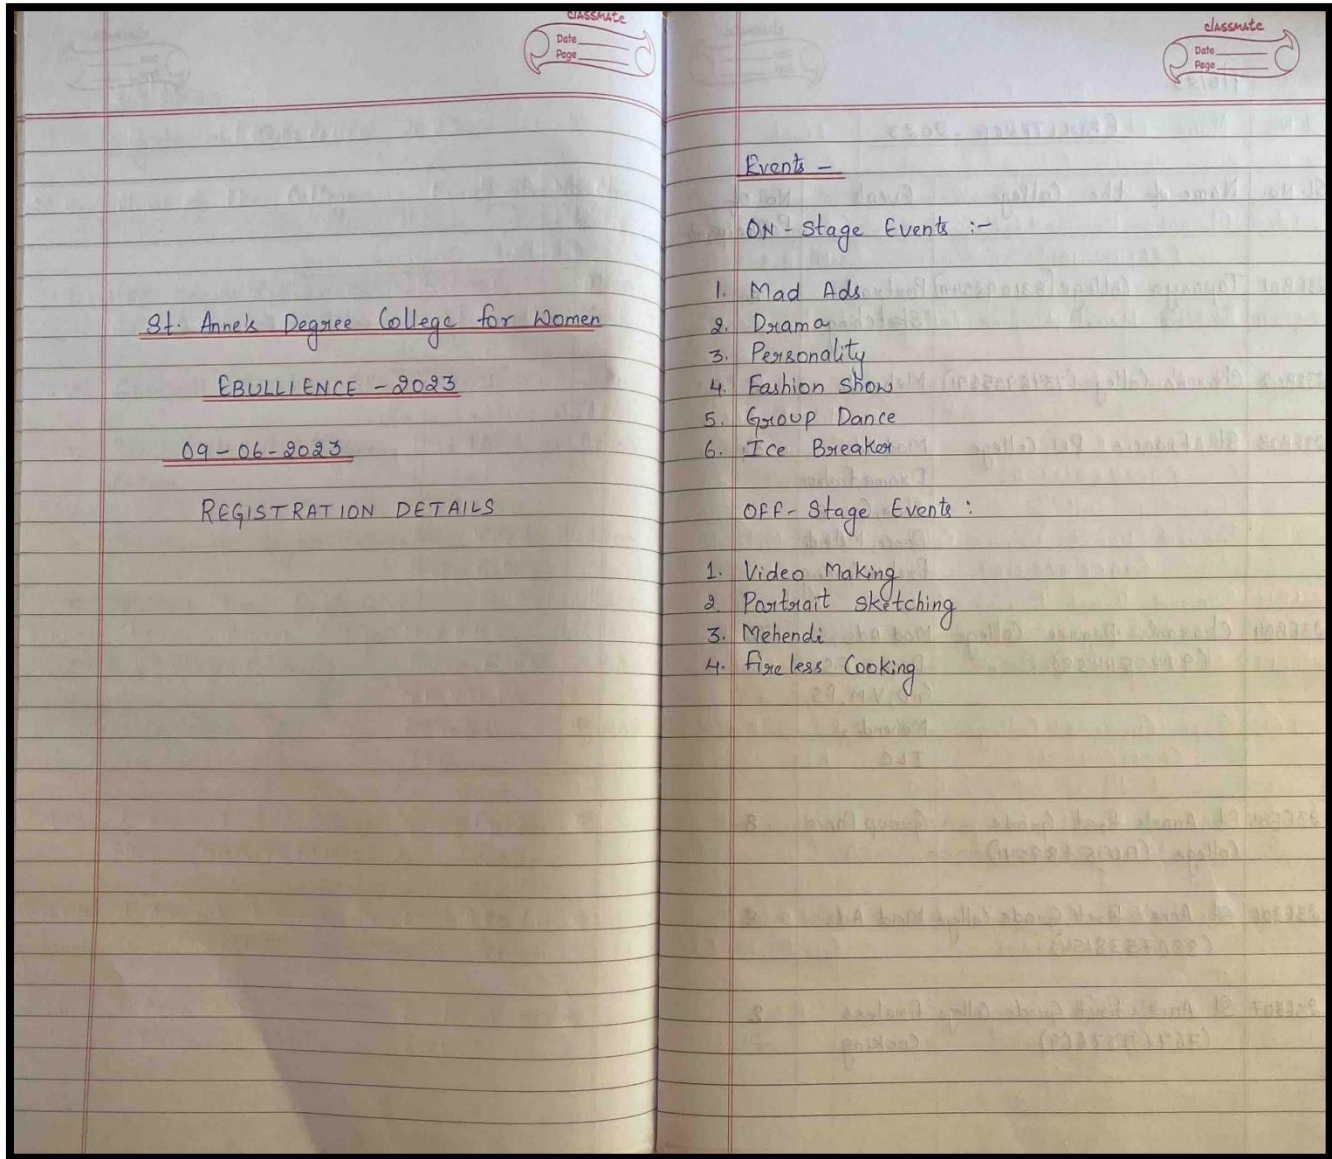 classmate
Date
Page
St. Anne's Degree College for Women
EBULLIENCE - 2023
09-06-2023
REGISTRATION DETAILS
classmate
Date
Page
Events -
ON - Stage Events :-
1. Mad Ads
2. Drama
3. Personality
4. Fashion Show
5. Group Dance
6. Ice Breaker
OFF - Stage Events :
1. Video Making
2. Portrait Sketching
3. Mehendi
4. Fireless Cooking